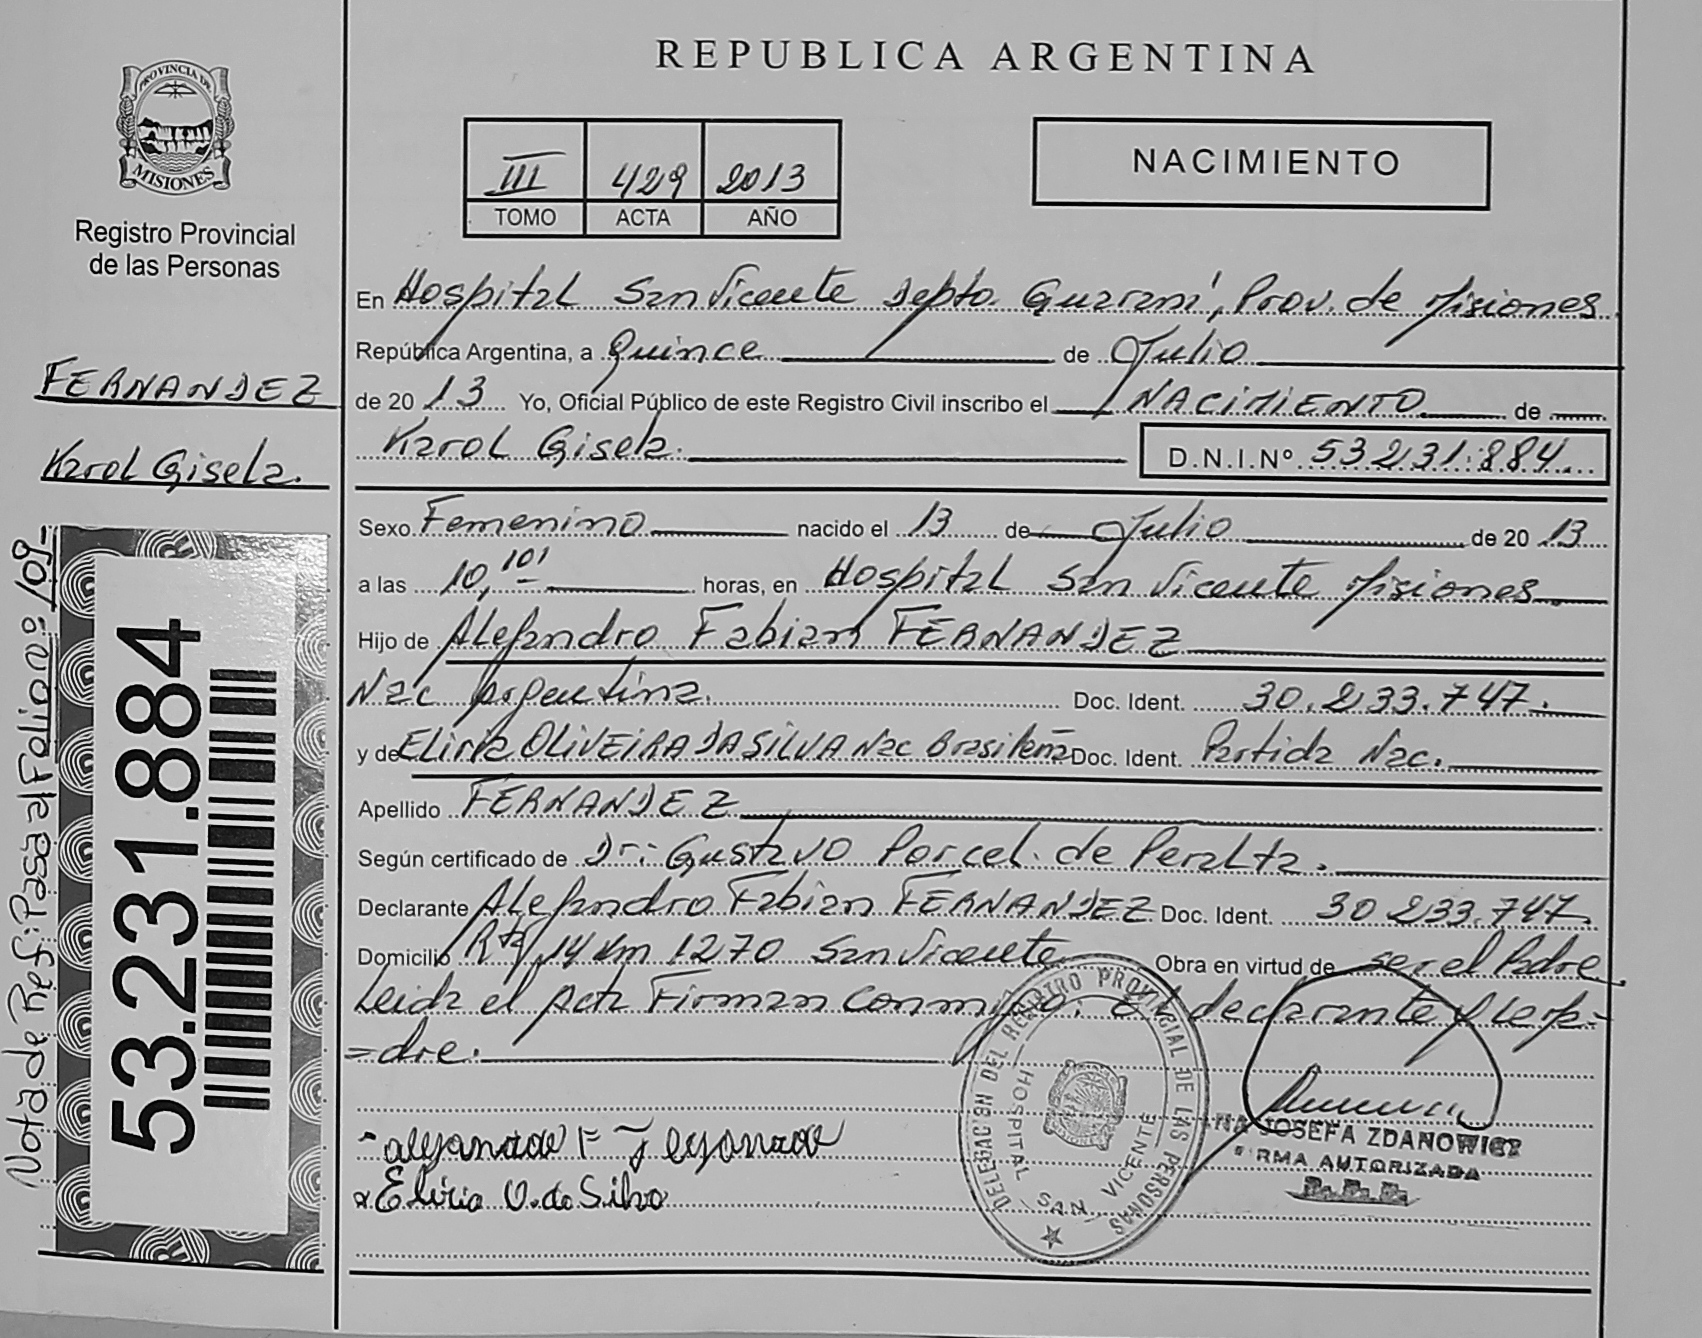 REPUBLICA ARGENTINA
PROVINCIA DE
MISIONES
Registro Provincial
de las Personas
III 429 2013
TOMO ACTA AÑO
NACIMIENTO
En Hospital San Vicente Depto. Guaraní, Prov. de Misiones
República Argentina, a Quince de Julio
de 20 13 Yo, Oficial Público de este Registro Civil inscribo el NACIMIENTO de
Karol Gisela. D.N.I.Nº 53231.884
FERNANDEZ
Karol Gisela.
Sexo Femenino nacido el 13 de Julio de 20 13
a las 10,10' horas, en Hospital San Vicente Misiones
Hijo de Alejandro Fabian FERNANDEZ
Nac Argentina. Doc. Ident. 30.233.747.
y de Eliria OLIVEIRA DA SILVA Nac Brasileña Doc. Ident. Partida Nac.
Apellido FERNANDEZ
Según certificado de Dr: Gustavo Porcel de Peralta.
Declarante Alejandro Fabian FERNANDEZ Doc. Ident. 30.233.747.
Domicilio Rta, 14 Km 1270 San Vicente Obra en virtud de ser el Padre
Leida el Acta Firman conmigo: El declarante y la Ma=
=dre.
Eliria O. da Silva
DELEGACION DEL REGISTRO PROVINCIAL DE LAS PERSONAS
HOSPITAL SAN VICENTE
JOSEFA ZDANOWICZ
FIRMA AUTORIZADA
53.231.884
Nota de Ref: Pasa al Folio nº 109-